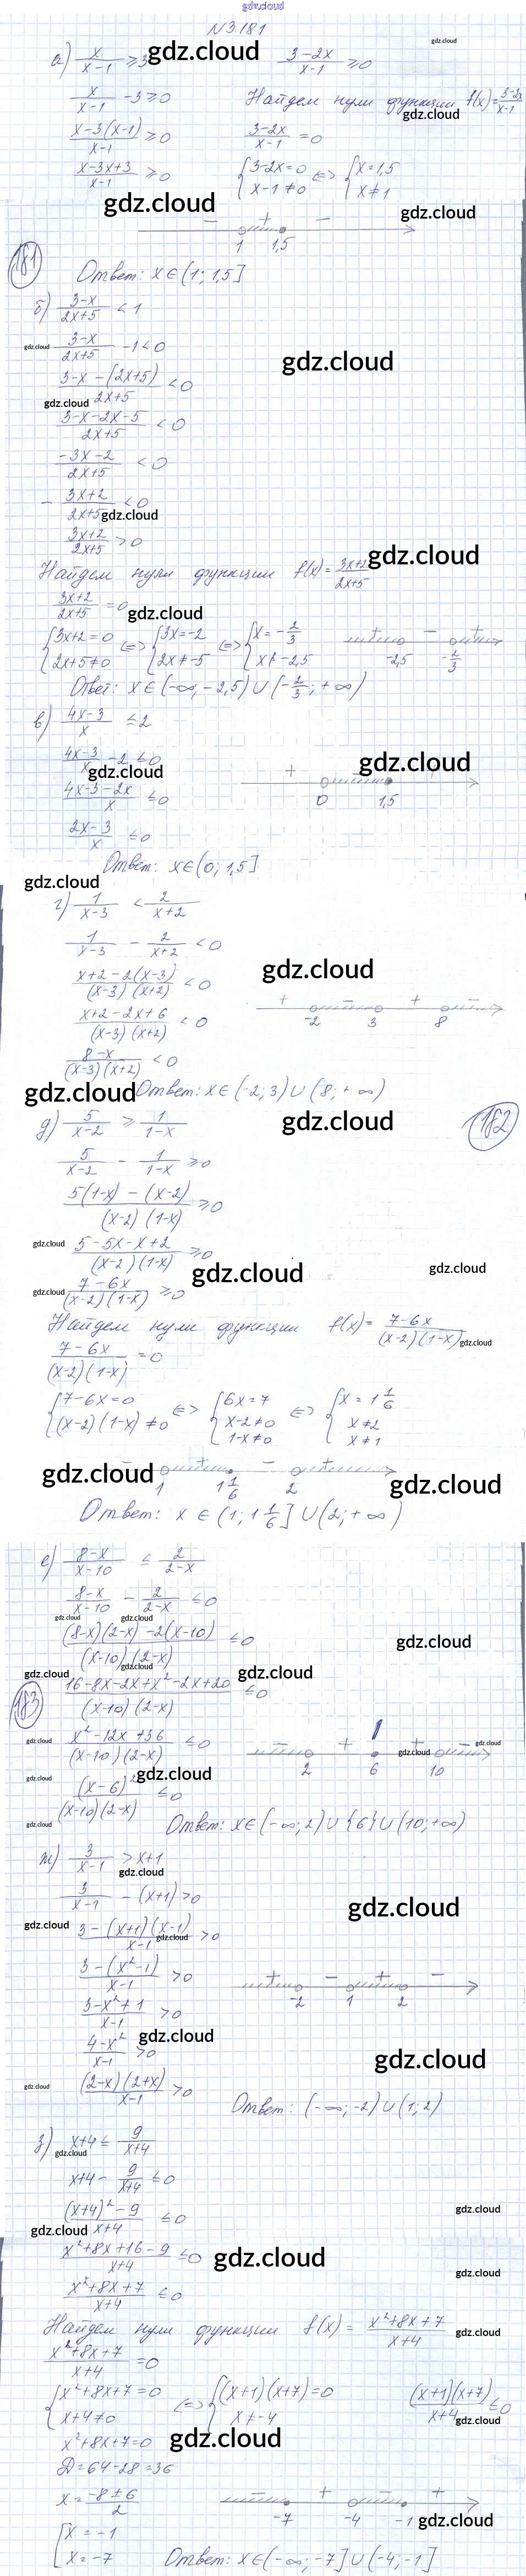 gdz.cloud
N 3.181
а) x/(x-1) ≥ 3 gdz.cloud (3-2x)/(x-1) ≥ 0 gdz.cloud
x/(x-1) - 3 ≥ 0 Найдем нули функции f(x) = (3-2x)/(x-1)
gdz.cloud
(x-3(x-1))/(x-1) ≥ 0 (3-2x)/(x-1) = 0
(x-3x+3)/(x-1) ≥ 0 { 3-2x=0 x-1≠0 <=> { x=1,5 x≠1
gdz.cloud gdz.cloud
- + -
1 1,5
181
Ответ: x∈(1; 1,5]
б) (3-x)/(2x+5) < 1
gdz.cloud (3-x)/(2x+5) - 1 < 0 gdz.cloud
(3-x-(2x+5))/(2x+5) < 0
gdz.cloud
(3-x-2x-5)/(2x+5) < 0
(-3x-2)/(2x+5) < 0
- (3x+2)/(2x+5) < 0 gdz.cloud
(3x+2)/(2x+5) > 0
Найдем нули функции f(x) = (3x+2)/(2x+5) gdz.cloud
(3x+2)/(2x+5) = 0 gdz.cloud
{ 3x+2=0 2x+5≠0 <=> { 3x=-2 2x≠-5 <=> { x=-2/3 x≠-2,5 + - + -2,5 -2/3
Ответ: x∈(-∞; -2,5) ∪ (-2/3; +∞)
в) (4x-3)/x ≤ 2
(4x-3)/x - 2 ≤ 0 gdz.cloud
gdz.cloud
(4x-3-2x)/x ≤ 0 + 0 1,5
(2x-3)/x ≤ 0
Ответ: x∈(0; 1,5]
gdz.cloud
г) 1/(x-3) < 2/(x+2)
1/(x-3) - 2/(x+2) < 0
gdz.cloud
(x+2-2(x-3))/((x-3)(x+2)) < 0
(x+2-2x+6)/((x-3)(x+2)) < 0 + - + - -2 3 8
(8-x)/((x-3)(x+2)) < 0
gdz.cloud Ответ: x∈(-2; 3) ∪ (8; +∞)
д) 5/(x-2) ≥ 1/(1-x) gdz.cloud 182
5/(x-2) - 1/(1-x) ≥ 0
(5(1-x)-(x-2))/((x-2)(1-x)) ≥ 0
gdz.cloud (5-5x-x+2)/((x-2)(1-x)) ≥ 0
gdz.cloud gdz.cloud
gdz.cloud (7-6x)/((x-2)(1-x)) ≥ 0
Найдем нули функции f(x) = (7-6x)/((x-2)(1-x)) gdz.cloud
(7-6x)/((x-2)(1-x)) = 0
{ 7-6x=0 (x-2)(1-x)≠0 <=> { 6x=7 x-2≠0 1-x≠0 <=> { x=1 1/6 x≠2 x≠1
gdz.cloud - + - + gdz.cloud
1 1 1/6 2
Ответ: x∈(1; 1 1/6] ∪ (2; +∞)
е) (8-x)/(x-10) ≤ 2/(2-x)
(8-x)/(x-10) - 2/(2-x) ≤ 0
gdz.cloud gdz.cloud
((8-x)(2-x)-2(x-10))/((x-10)(2-x)) ≤ 0 gdz.cloud
gdz.cloud gdz.cloud gdz.cloud
183
(16-8x-2x+x²-2x+20)/((x-10)(2-x)) ≤ 0
gdz.cloud (x²-12x+36)/((x-10)(2-x)) ≤ 0 - + + - gdz.cloud gdz.cloud
2 6 10
gdz.cloud (x-6)²/((x-10)(2-x)) ≤ 0 gdz.cloud
gdz.cloud Ответ: x∈(-∞; 2) ∪ {6} ∪ (10; +∞)
ж) 3/(x-1) > x+1
gdz.cloud
3/(x-1) - (x+1) > 0
gdz.cloud
gdz.cloud (3-(x+1)(x-1))/(x-1) > 0 gdz.cloud
(3-(x²-1))/(x-1) > 0 + - + -
-2 1 2
(3-x²+1)/(x-1) > 0
(4-x²)/(x-1) > 0 gdz.cloud
gdz.cloud
gdz.cloud ((2-x)(2+x))/(x-1) > 0
Ответ: (-∞; -2) ∪ (1; 2)
з) x+4 ≤ 9/(x+4)
gdz.cloud
x+4 - 9/(x+4) ≤ 0
((x+4)²-9)/(x+4) ≤ 0 gdz.cloud
gdz.cloud
(x²+8x+16-9)/(x+4) ≤ 0 gdz.cloud
gdz.cloud
(x²+8x+7)/(x+4) ≤ 0
Найдем нули функции f(x) = (x²+8x+7)/(x+4) gdz.cloud
(x²+8x+7)/(x+4) = 0
{ x²+8x+7=0 x+4≠0 <=> { (x+1)(x+7)=0 x≠-4 ((x+1)(x+7))/(x+4) ≤ 0
gdz.cloud
x²+8x+7=0 gdz.cloud
D=64-28=36
x = (-8±6)/2 - + - +
-7 -4 -1 gdz.cloud
[ x=-1 x=-7
Ответ: x∈(-∞; -7] ∪ (-4; -1]